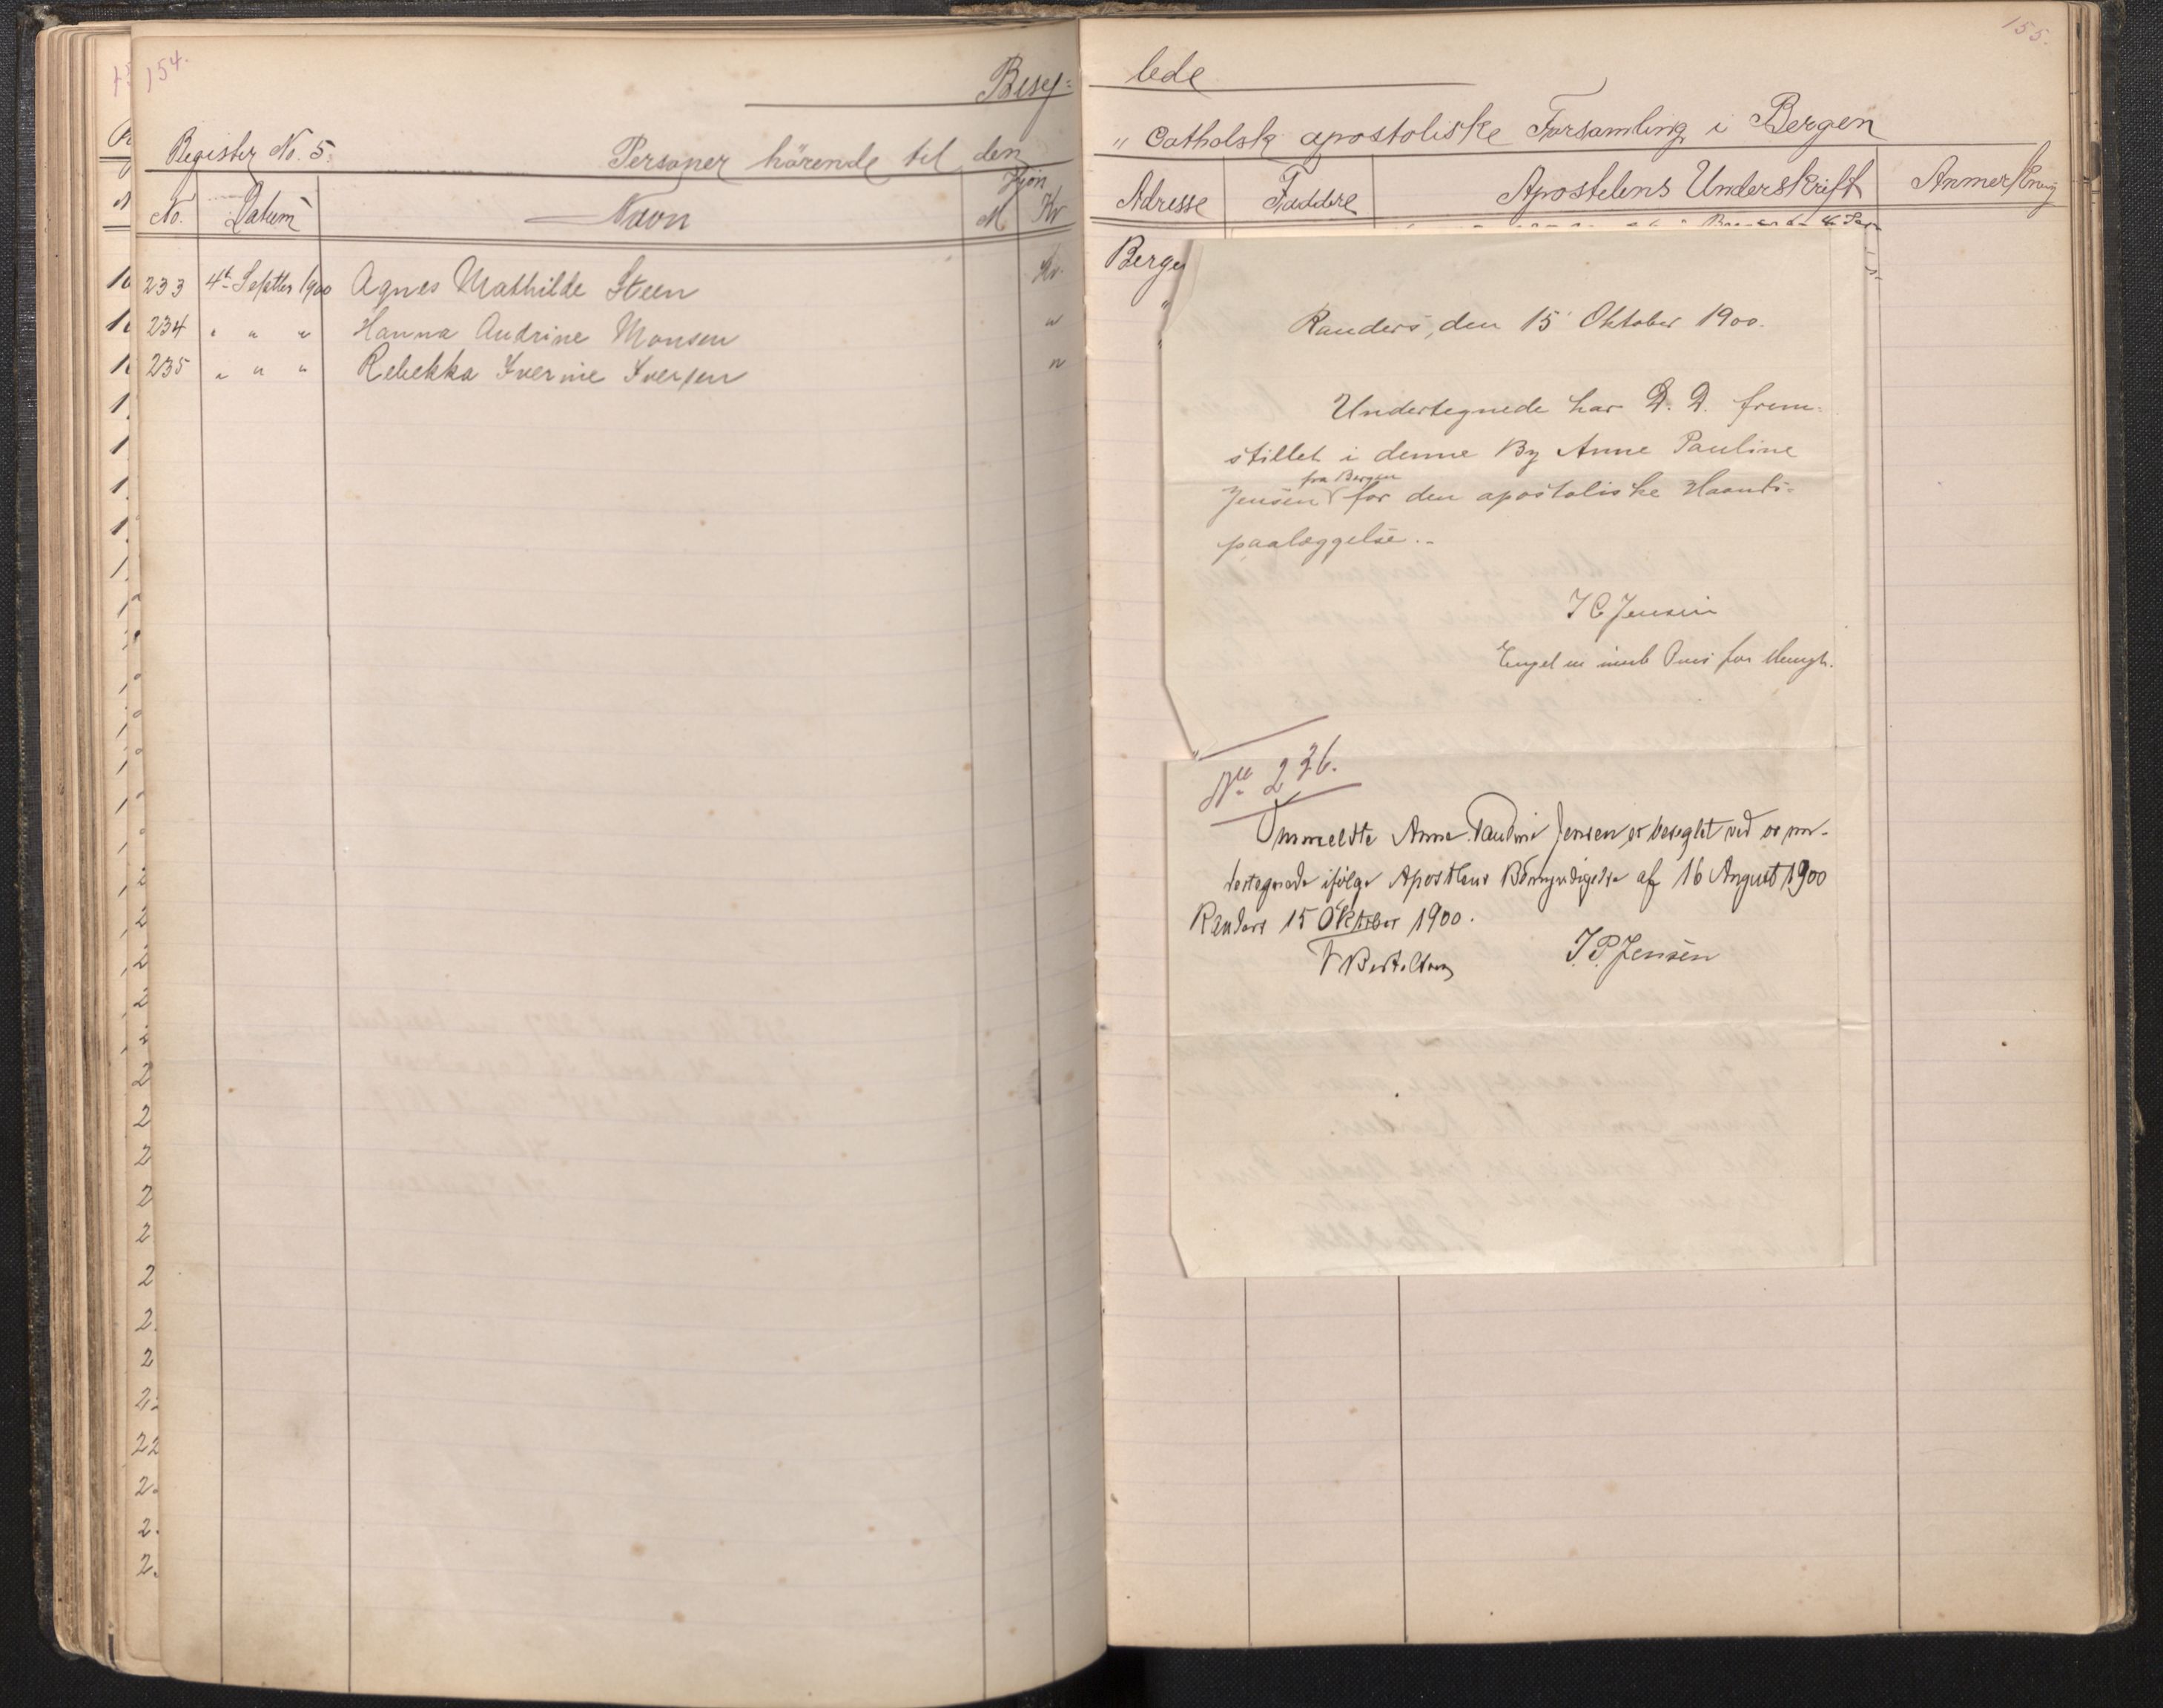 154.
Beseg=
Register No. 5.
Personer hörende til den
No.
Datum
Navn
Kjön
M
Kv
233 4de Septbr 1900 Agnes Mathilde Steen Kv.
234 " " " Hanna Andrine Monsen "
235 " " " Rebekka Iverine Iversen "
155.
lede
" Catholsk apostoliske Forsamling i Bergen
Adresse
Faddere
Apostelens Underskrift
Anmerkning
Berge
"
"
Randers, den 15 Oktober 1900.
Undertegnede har D. D. frem-
stillet i denne By Anne Pauline
fra Bergen
Jensen for den apostoliske Haands-
paalæggelse.-
I C Jensen
Engel for Mengh.
No 236.
Ommeldte Anne Pauline Jensen er beseglet ved os un-
dertegnede ifølge Apostlens Bemyndigelse af 16 August 1900
Randers 15 Oktober 1900.
I. P. Jensen